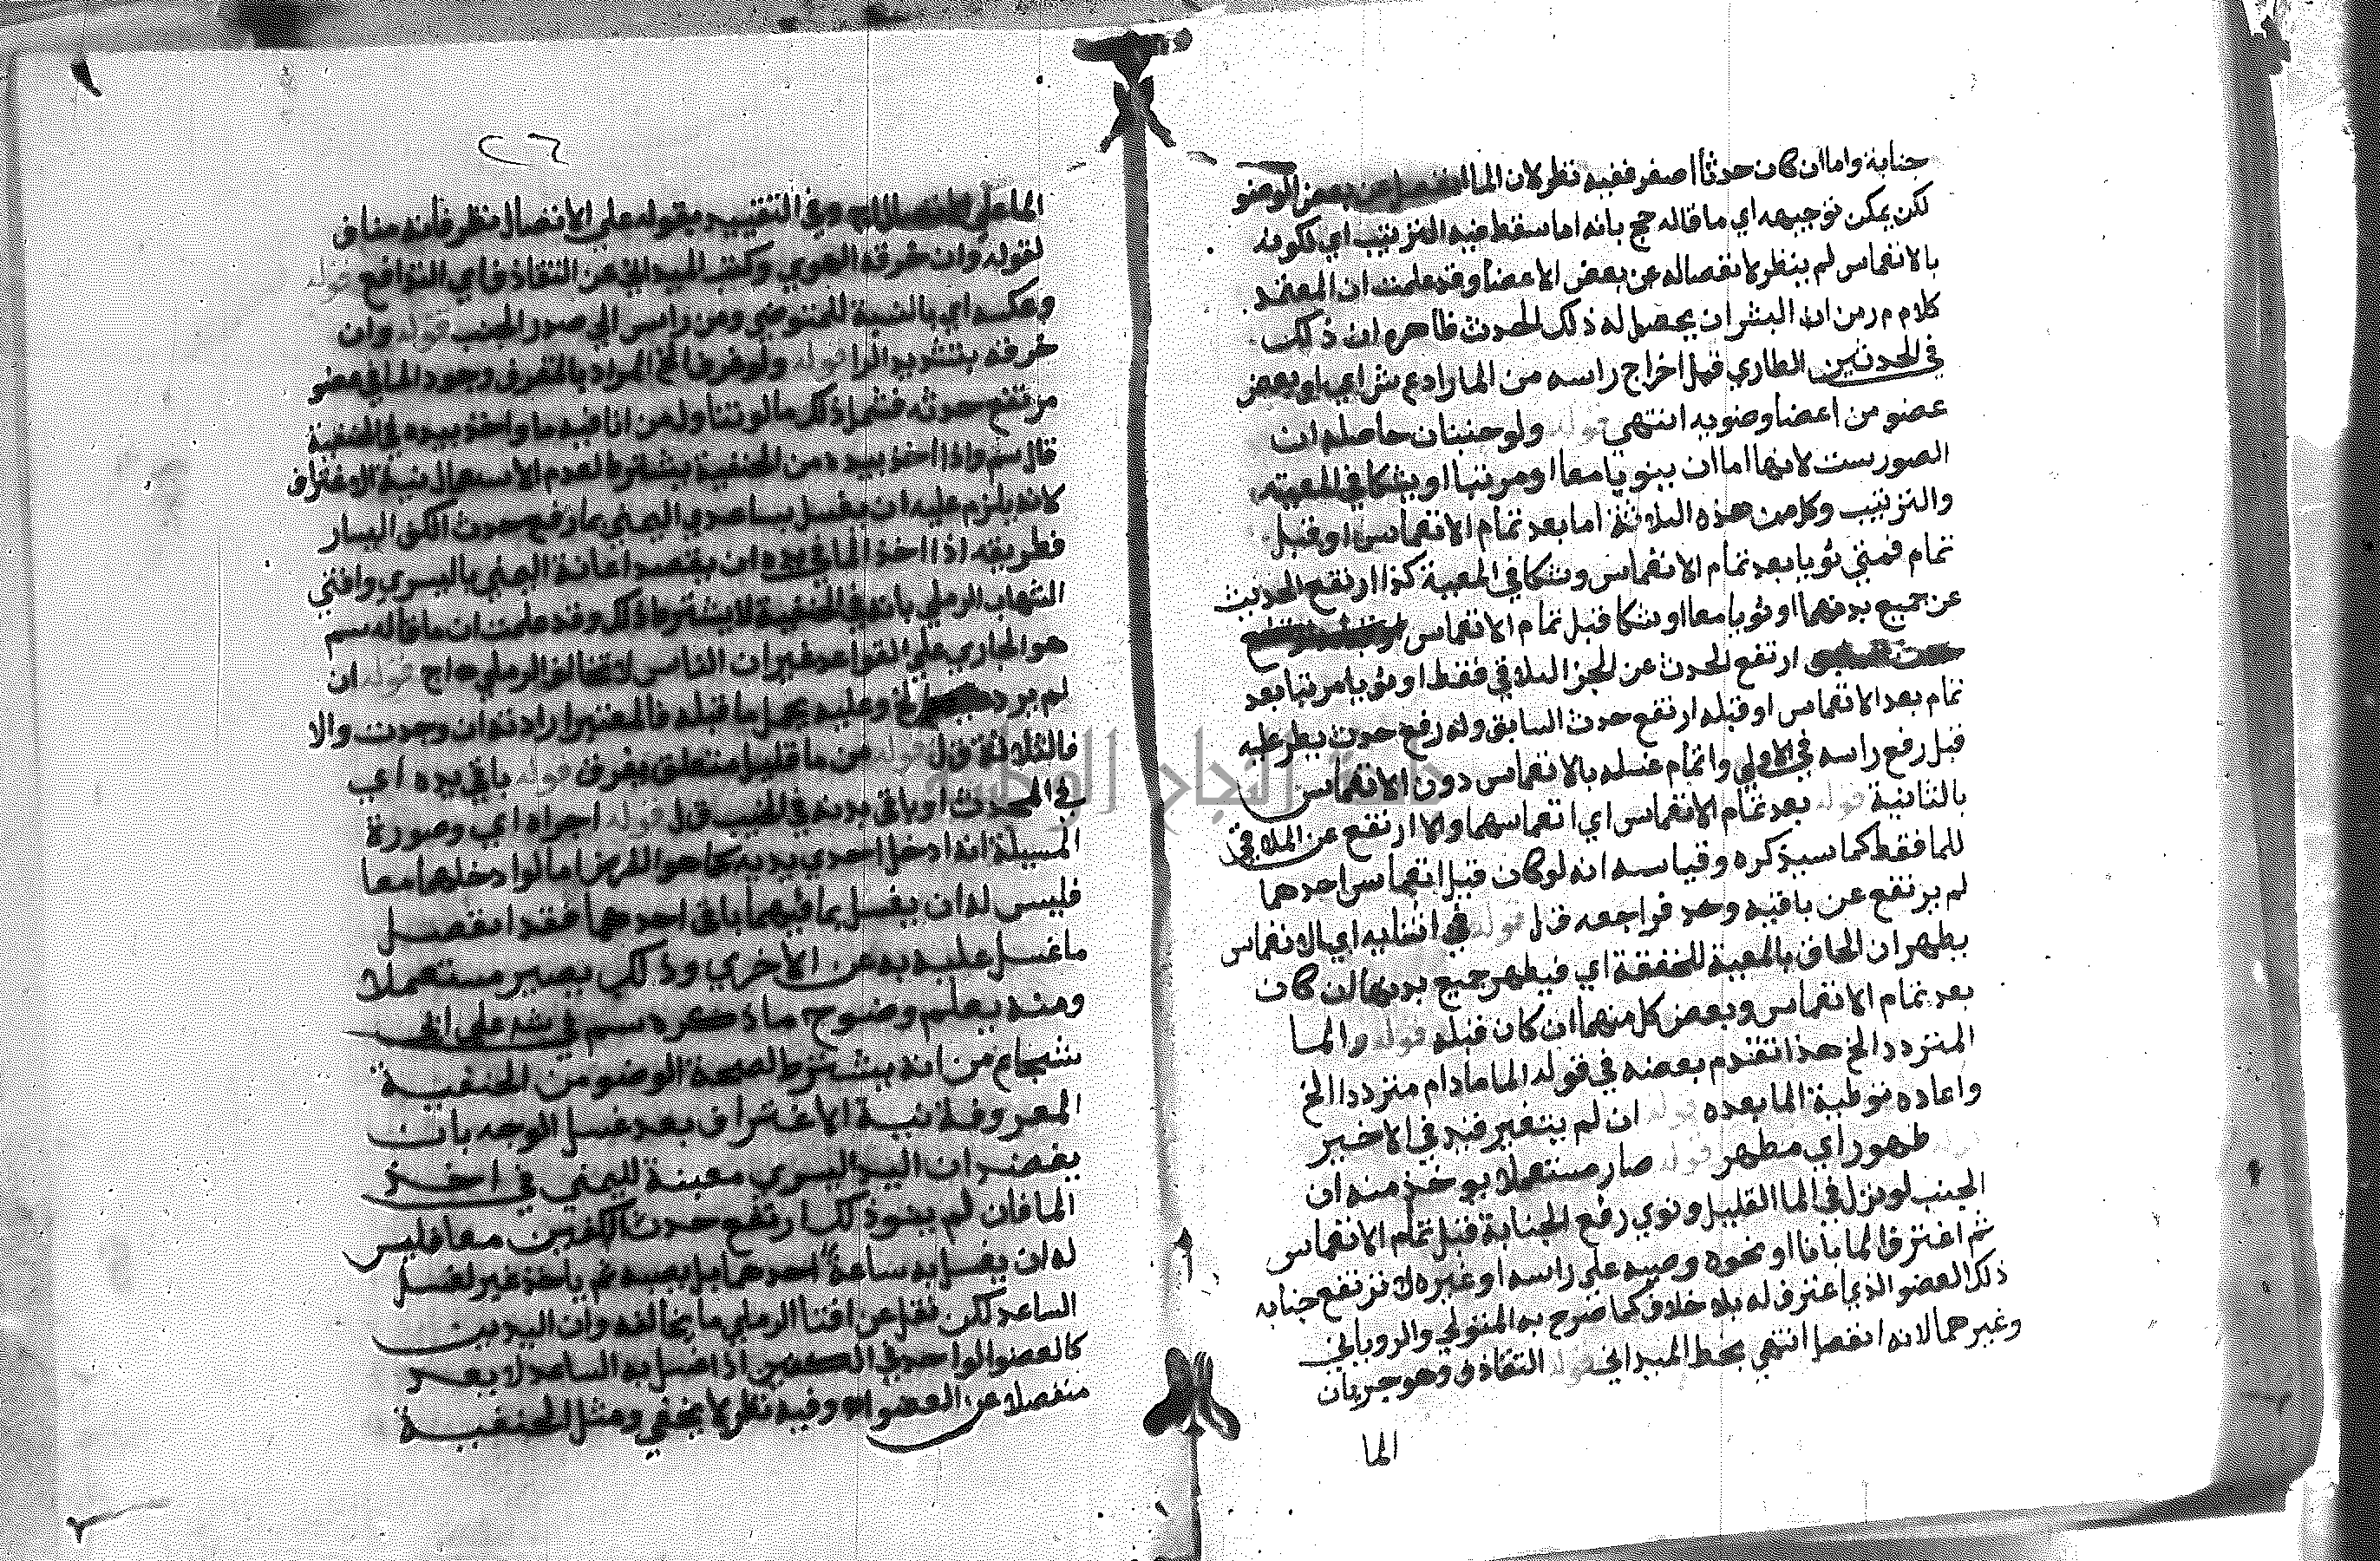 جنابة واما ان كان حدثا أصغر ففيه نظر لان الما المنفصل عن بعض الوضو
لكن يمكن توجيهه اي ما قاله حج بانه اما سقط فيه الترتيب اي لكونه
بالانغماس لم ينظر لانفصاله عن بعض الاعضا وقد علمت ان المعتمد
كلام م ر من انه البشر ان يحصل له ذلك الحدث ظاهره ان ذلك
في الحدثين الطاري قبل اخراج راسه من الما زاد ع ش اي او بعض
عضو من اعضا وضويه انتهى قوله ولو جنبنان حاصله ان
الصور ست لانهما اما ان ينويا معا او مرتبا او يشكا في المعية
والترتيب وكل من هذه الثلاثة اما بعد تمام الانغماس او قبل
تمام فمتى نويا بعد تمام الانغماس وشكا في المعية كذا ارتفع الحدث
عن جميع بدنهما او نويا معا او شكا قبل تمام الانغماس
ارتفع الحدث عن الجز الملاقي فقط او نويا مرتبا بعد
تمام بعد الانغماس او قبله ارتفع حدث السابق وله رفع حدث يطر عليه
قبل رفع راسه في الاولي واتمام غسله بالانغماس دون الانغماس
بالثانية قوله بعد تمام الانغماس اي انغماسهما والا ارتفع عن الملاقي
للما فقط كما سيذكره وقياسه انه لو كان قبل انغماس احدهما
لم يرتفع عن باقيه وحد فراجعه ق ل قوله في اثنايه اي الانغماس
يطهران الحاق بالمعية المحققة اي فيطهر جميع بدنهما ان كان
بعد تمام الانغماس وبعض كل منهما ان كان قبله قوله والما
المتردد الخ هذا تقدم بعضه في قوله الما مادام مترددا الخ
واعاده توطية لما بعده قوله ان لم يتغير قيد في الاخير
قوله طهور اي مطهر قوله صار مستعملا يوخذ منه ان
الجنب لو نزل في الما القليل ونوي رفع الجنابة قبل تمام الانغماس
ثم اغترف الما بانا او نحوه وصبه على راسه او غيره لا ترتفع جنابه
ذلك العضو الذي اغترف له بلا خلاف كما صرح به المتولي والروياني
وغيرهما لانه انفصل انتهي بخط الميداني قوله التقاذف وهو جريان
الما
٢٦
الما على وفي التقييد بقوله على الاتصال نظر فانه مناف
لقوله وان خرقه الهوي وكتب الميداني عن التقاذف اي التوافع قوله
وعكسه اي بالنسبة للمتوضي ومن راس الي صدر الجنب قوله وان
خرقه بتشديد الرا قوله ولو غرف الخ المراد بالغرف وجود الما في عضو
مرتفع حدثه فشمل ذلك ما لو تناوله من انا فيه ما واخذ بيده في الحنفية
قال سم واذا اخذ بيده من الحنفية يشترط لعدم الاستعمال نية الاغتراف
لانه يلزم عليه ان يغسل بساعدي اليمني ما رفع حدث الكف اليسار
فطريقه اذا اخذ الما في يده ان يقصد اعانة اليمني باليسري وافتي
الشهاب الرملي بانه في الحنفية لا يشترط ذلك وقد علمت ان ما قاله سم
هو الجاري علي القواعد غير ان الناس الرملي اج قوله ان
لم يرد الخ وعليه يحمل ما قبله فالمعتبر ارادته ان وجدت والا
فالثلاثة ق ل قوله من ما قليل متعلق بغرف قوله باقي يده اي
في المحدث او باقي بدنه في الجنب ق ل قوله اجزاه اي وصورة
المسيلة انه ادخل احدي يديه كما هو الفرض اما لو ادخلهما معا
فليس له ان يغسل بما فيهما باقي احدهما فقد انفصل
ما غسل عليه به عن الاخري وذلك يصير مستعملا
ومنه يعلم وضوح ما ذكره سم في شه على ابي
شجاع من انه يشترط لصحة الوضو من الحنفية
المعروفة نية الاغتراف بعد غسل الوجه بان
يقصد ان اليد اليسري معينة لليمني في اخذ
الما فان لم ينو ذلك ارتفع حدث الكفين معا فليس
له ان يغسل به ساعد احدهما بل يصبه ثم ياخذ غيره لغسل
الساعد لكن نقل عن افتا الرملي ما يخالفه وان اليدين
كالعضو الواحد في الكفين اذا غسل به الساعد لا يعد
منفصلا عن العضو اه وفيه نظر لا يخفي ومثل الحنفية